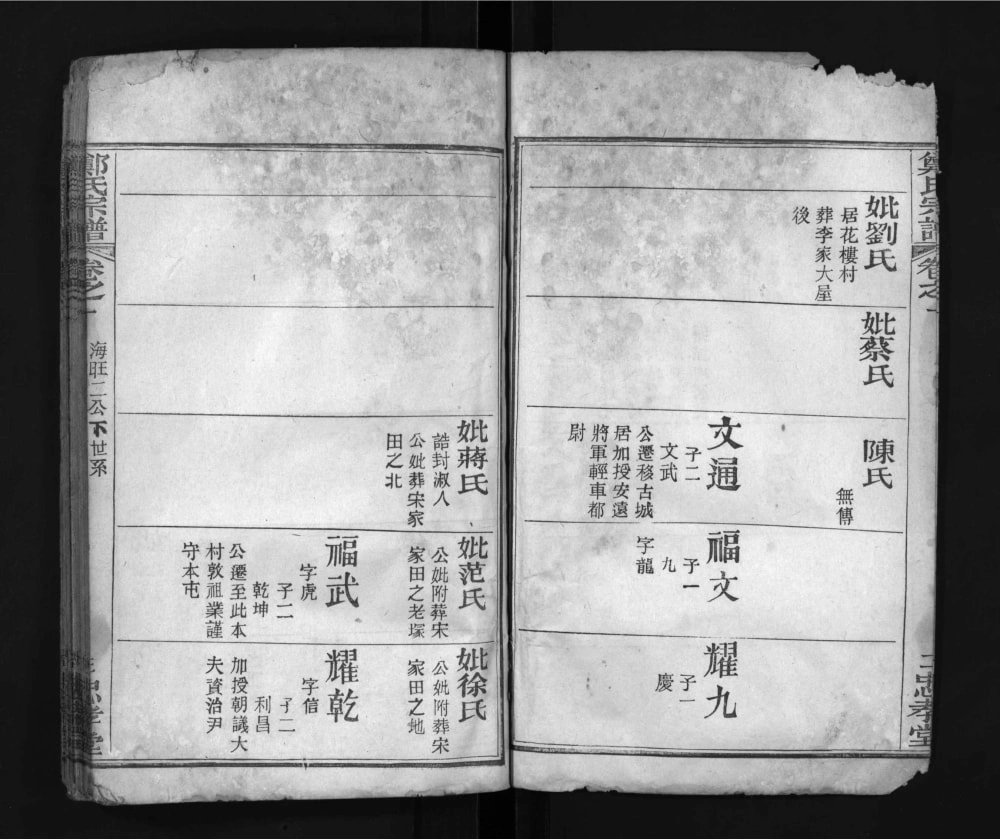 鄭氏宗譜
卷之一
三忠孝堂
妣劉氏
居花樓村
葬李家大屋
後
妣蔡氏
陳氏
無傳
文通
子二
文武
公遷移古城
居加授安遠
將軍輕車都
尉
福文
子一
九
字龍
耀九
子一
慶
妣蔣氏
誥封淑人
公妣葬宋家
田之北
妣范氏
公妣附葬宋
家田之老塚
福武
字虎
子二
乾坤
公遷至此本
村敦祖業謹
守本屯
妣徐氏
公妣附葬宋
家田之地
耀乾
字信
子二
利昌
加授朝議大
夫資治尹
鄭氏宗譜
卷之一
海旺二公下世系
忠孝堂